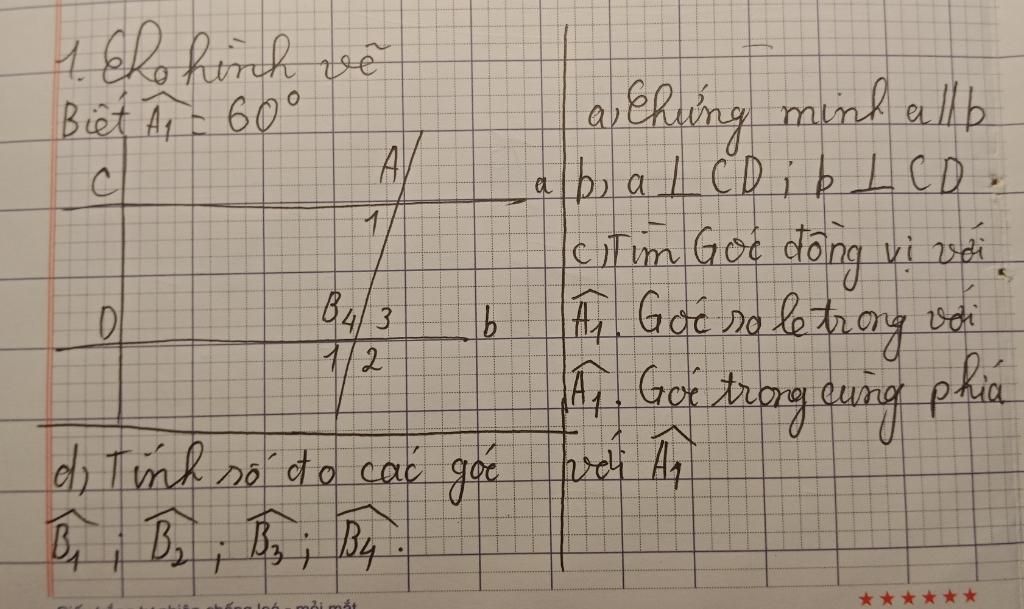 1. Cho hình vẽ
Biết Â₁ = 60°
C
A
a
1
D
B
4
3
b
1
2
a, Chứng minh a // b
b, a ⊥ CD ; b ⊥ CD.
c, Tìm Góc đồng vị với
Â₁. Góc so le trong với
Â₁. Góc trong cùng phía
với Â₁
d, Tính số đo các góc
B̂₁ ; B̂₂ ; B̂₃ ; B̂₄.
★★★★★★